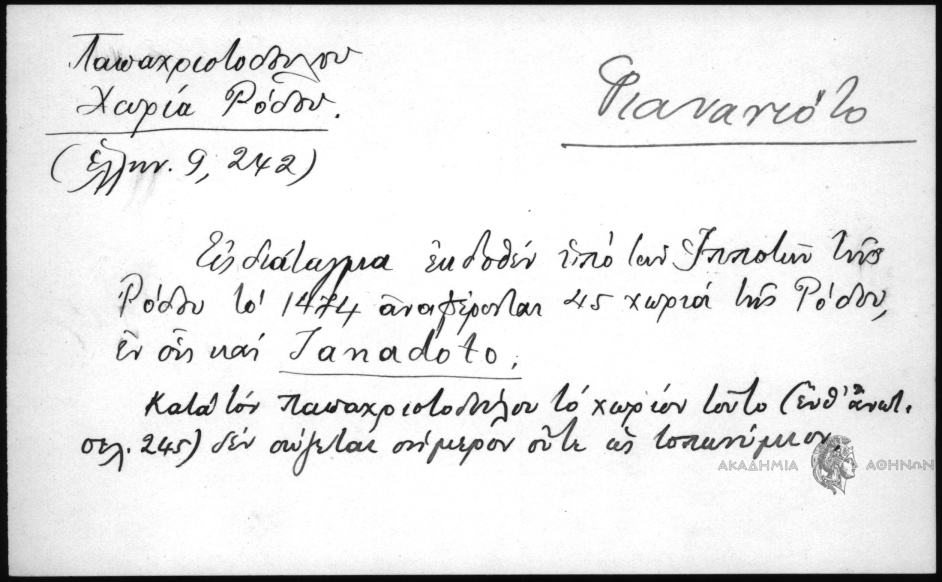 Παπαχριστοδούλου
Χωρία Ρόδου.
(Ἑλλην. 9, 242)
Εἰς διάταγμα ἐκδοθέν ὑπό τῶν Ἱπποτῶν τῆς
Ρόδου τό 1474 ἀναφέρονται 45 χωριά τῆς Ρόδου,
ἐν οἷς καί Janadoto.
Κατά τόν Παπαχριστοδούλου τό χωρίον τοῦτο (ἔνθ' ἀνωτ.
σελ. 245) δέν σώζεται σήμερον οὔτε ὡς τοπωνύμιον.
ΑΚΑΔΗΜΙΑ ΑΘΗΝΩΝ